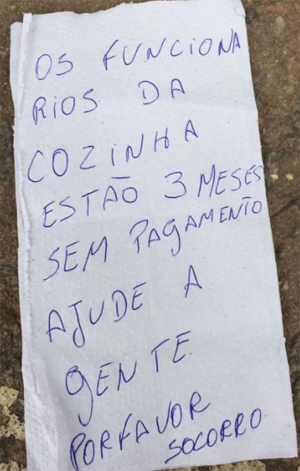 OS FUNCIONA
RIOS DA
COZINHA
ESTÃO 3 MESES
SEM PAGAMENTO
AJUDE A
GENTE
PORFAVOR
SOCORRO